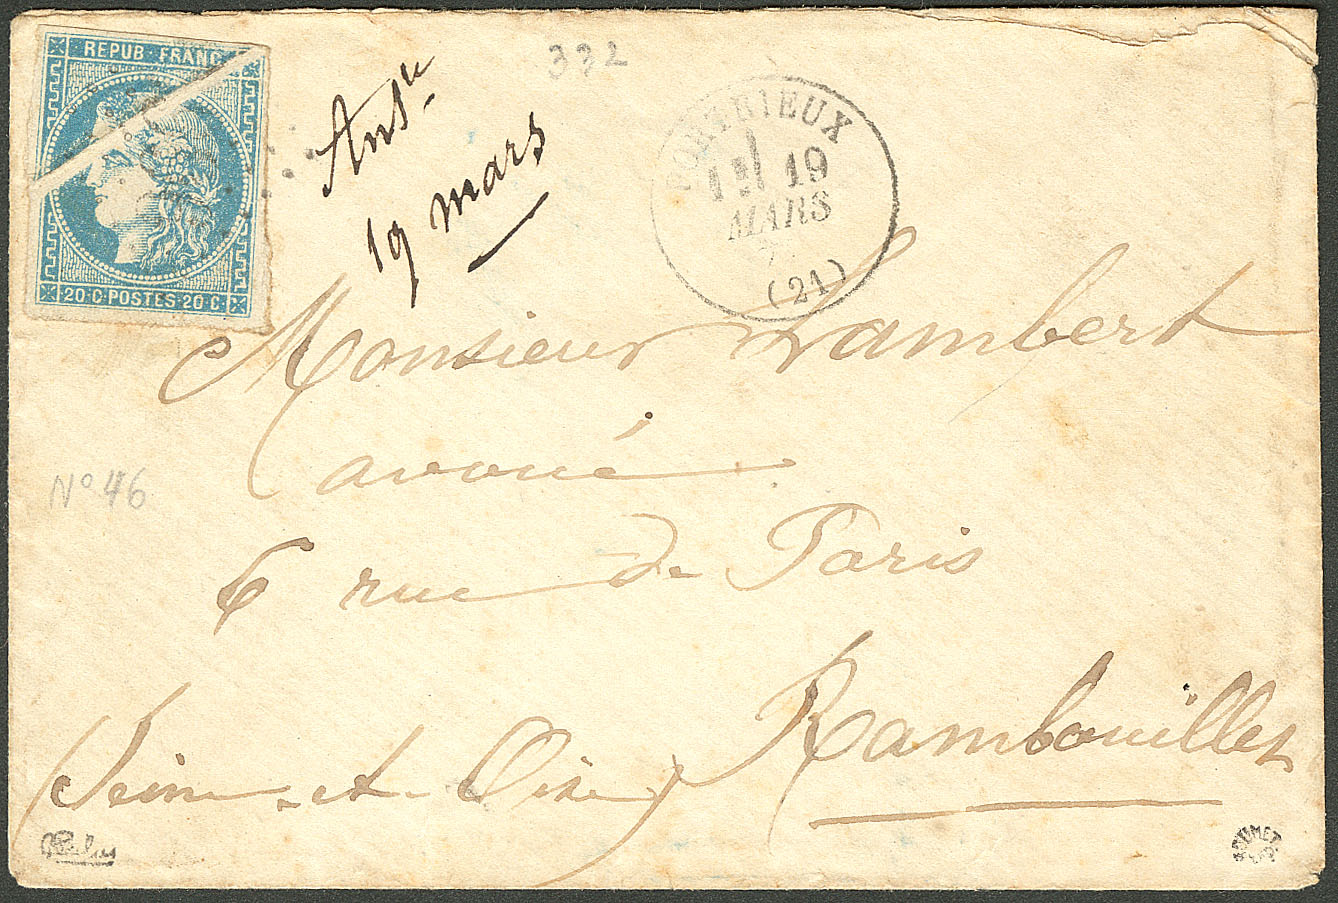 REPUB FRANC
20·C·POSTES·20·C
332
19 mars
PORTRIEUX
19
MARS
(21)
Monsieur Lambert
avoué
6 rue de Paris
Rambouillet
Seine-et-Oise
N° 46